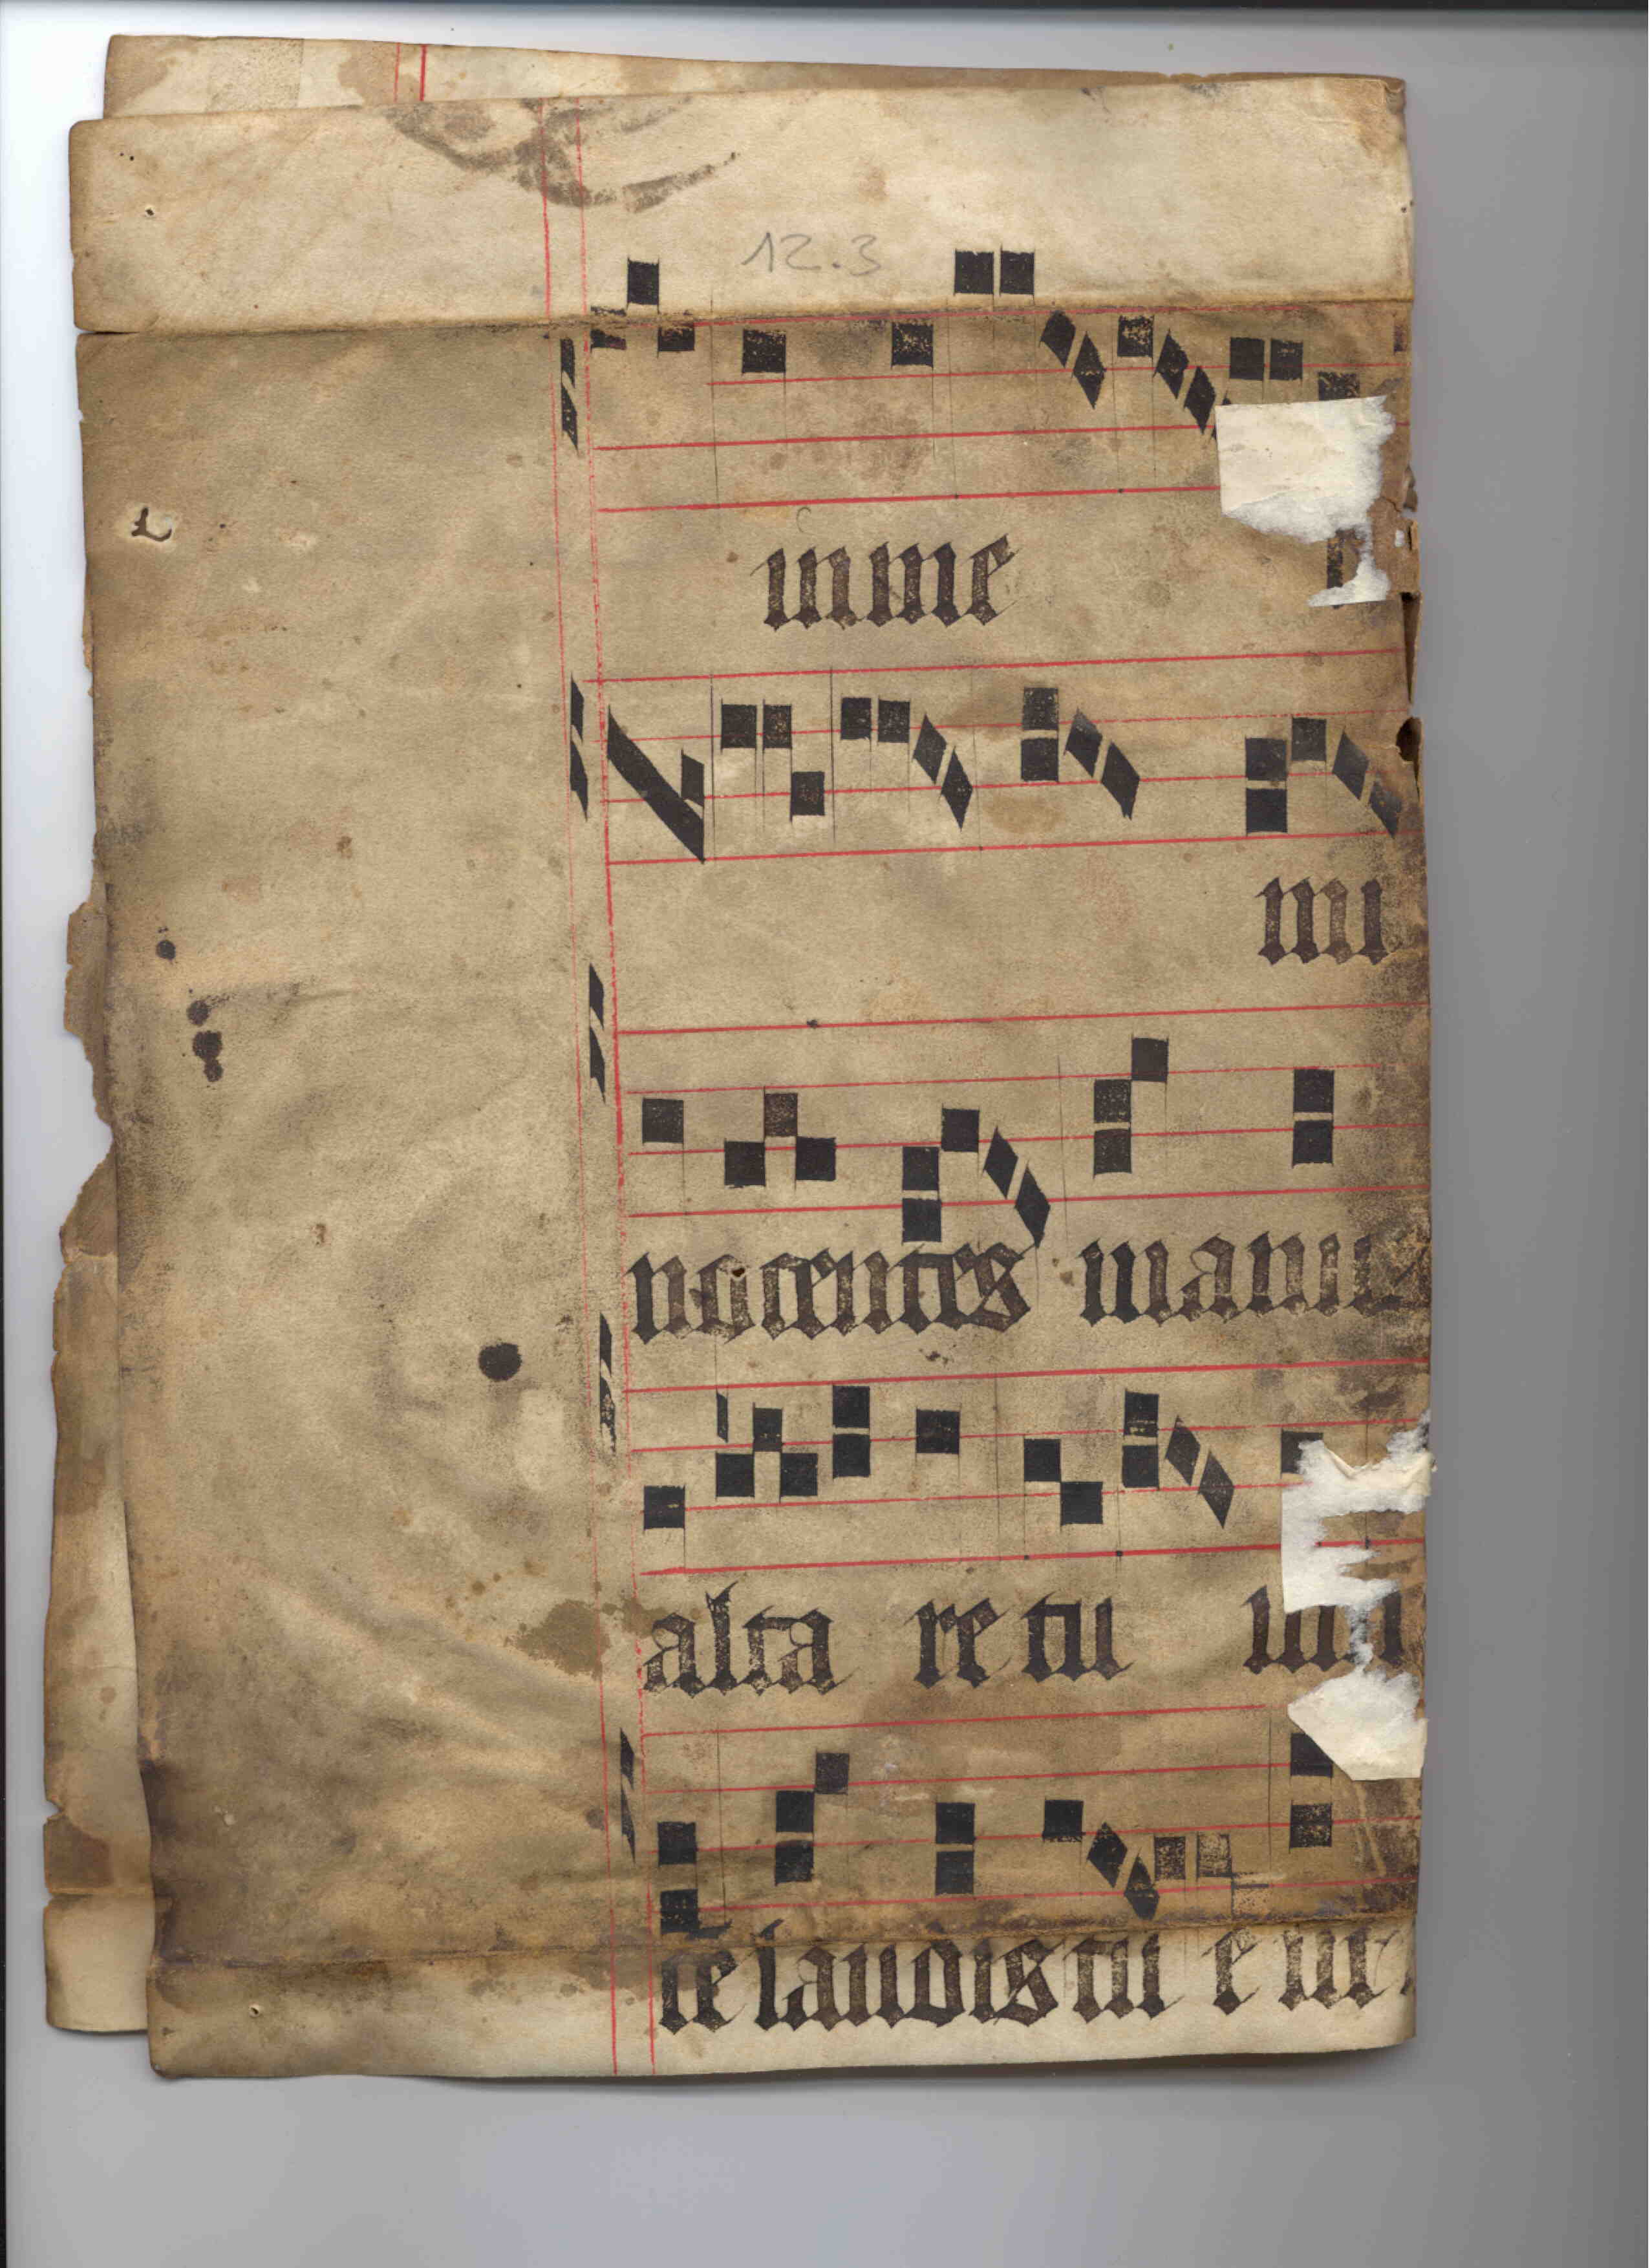 12.3
in me
nocentes manus
alta re tu
te laudis tu e ut